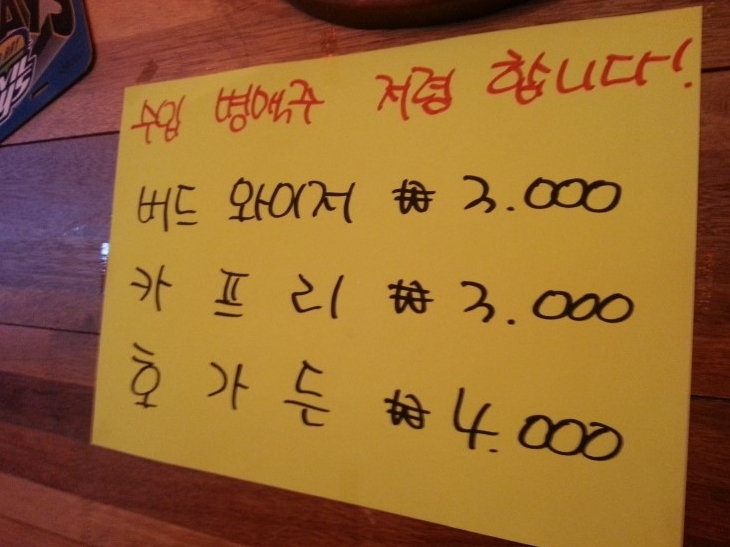 수입 병맥주 저렴 합니다!
버드 와이저 ₩ 3.000
카 프 리 ₩ 3.000
호 가 든 ₩ 4.000